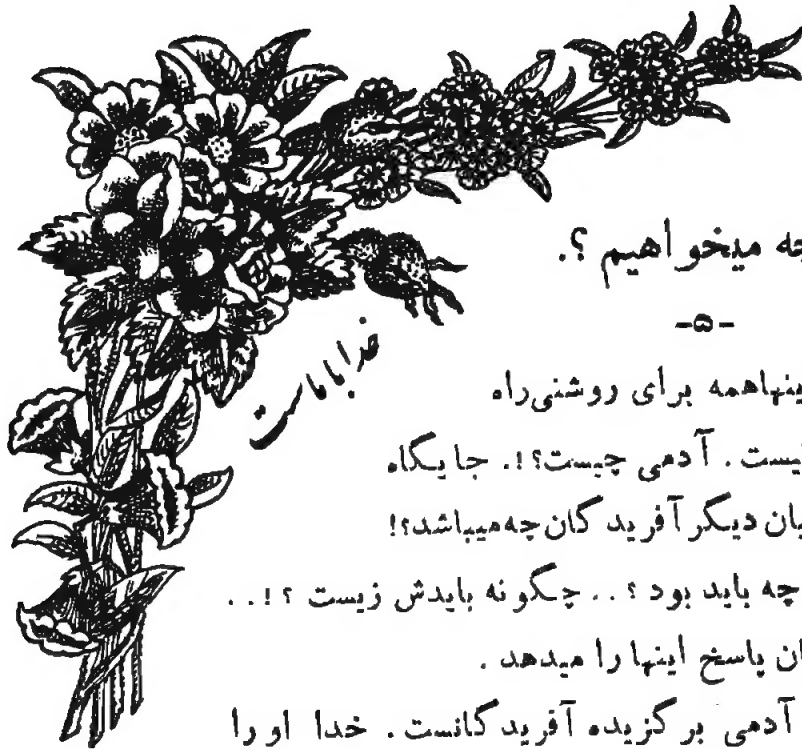 چه میخواهیم ؟.
-۵-
خدا با ماست
ینهاهمه برای روشنی‌راه
یست . آدمی چیست؟!. جایگاه
یان دیگر آفریدگان چه‌میباشد؟!
چه باید بود ؟.. چگونه بایدش زیست ؟!..
ان پاسخ اینها را میدهد .
آدمی برگزیده آفریدگانست. خدا او را